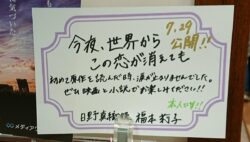 7.29
公開!!
今夜、世界から
この恋が消えても
初めて原作を読んだ時、涙が止まりませんでした。
ぜひ映画と小説でお楽しみください!!
本人です!!
日野真織役 福本莉子
メディアワ